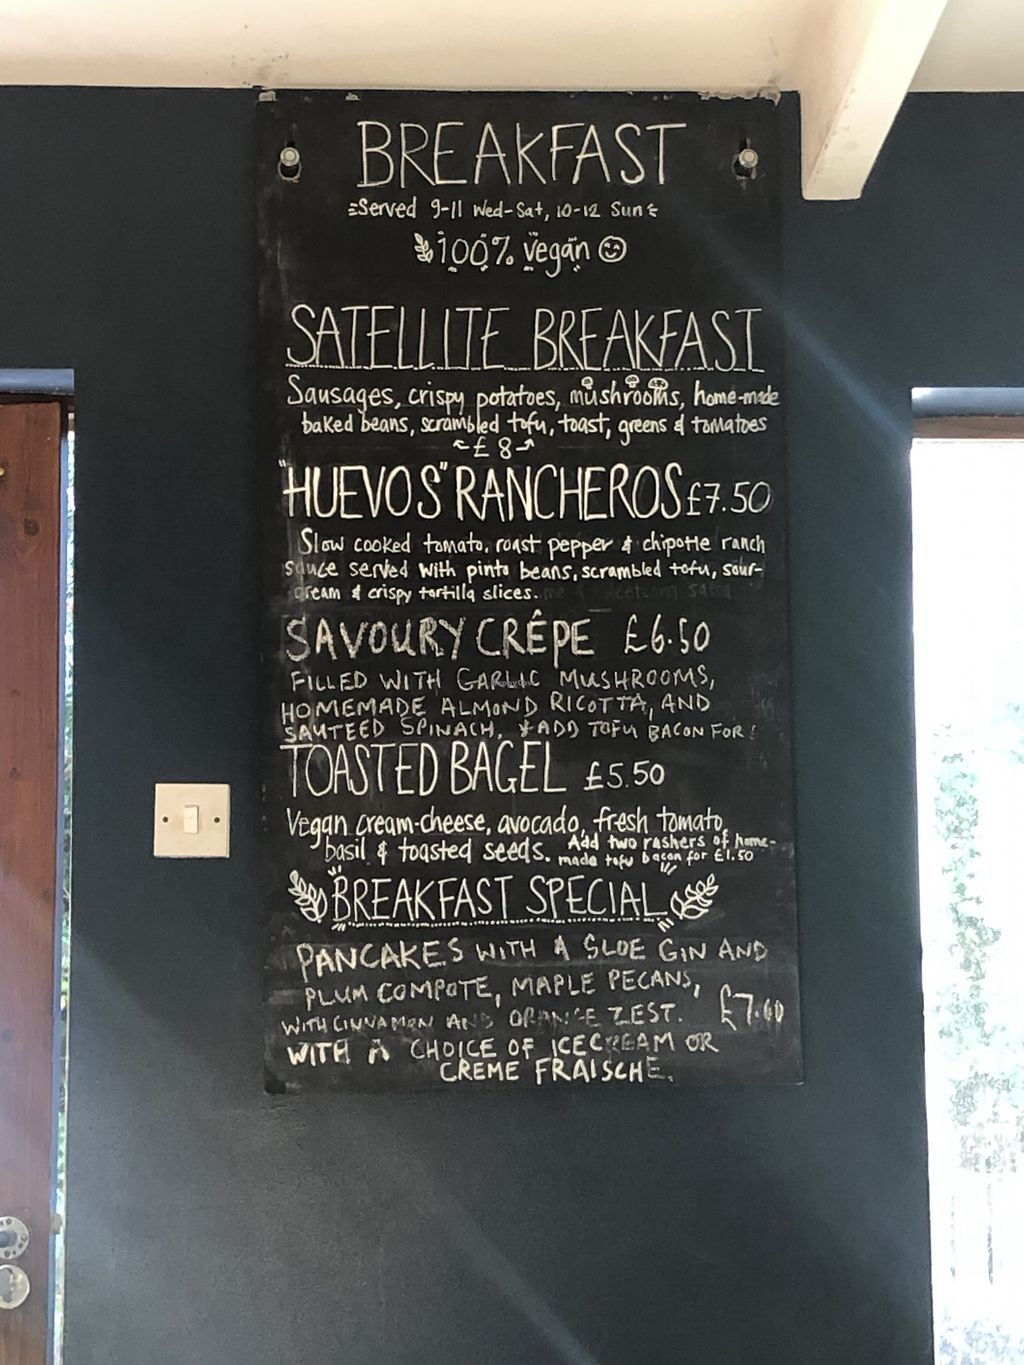 BREAKFAST
Served 9-11 Wed-Sat, 10-12 Sun
100% vegan
SATELLITE BREAKFAST
Sausages, crispy potatoes, mushrooms, home-made
baked beans, scrambled tofu, toast, greens & tomatoes
£8
"HUEVOS" RANCHEROS £7.50
Slow cooked tomato, roast pepper & chipotle ranch
sauce served with pinto beans, scrambled tofu, sour-
cream & crispy tortilla slices.
SAVOURY CRÊPE £6.50
FILLED WITH GARLIC MUSHROOMS,
HOMEMADE ALMOND RICOTTA, AND
SAUTEED SPINACH, *ADD TOFU BACON FOR
TOASTED BAGEL £5.50
Vegan cream-cheese, avocado, fresh tomato,
basil & toasted seeds. Add two rashers of home-
made tofu bacon for £1.50
BREAKFAST SPECIAL
PANCAKES WITH A SLOE GIN AND
PLUM COMPOTE, MAPLE PECANS,
WITH CINNAMON AND ORANGE ZEST.
WITH A CHOICE OF ICECREAM OR
CREME FRAISCHE.